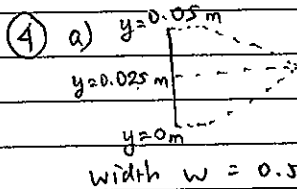 ④ a) y=0.05m
y=0.025m
y=0m
width w = 0.5